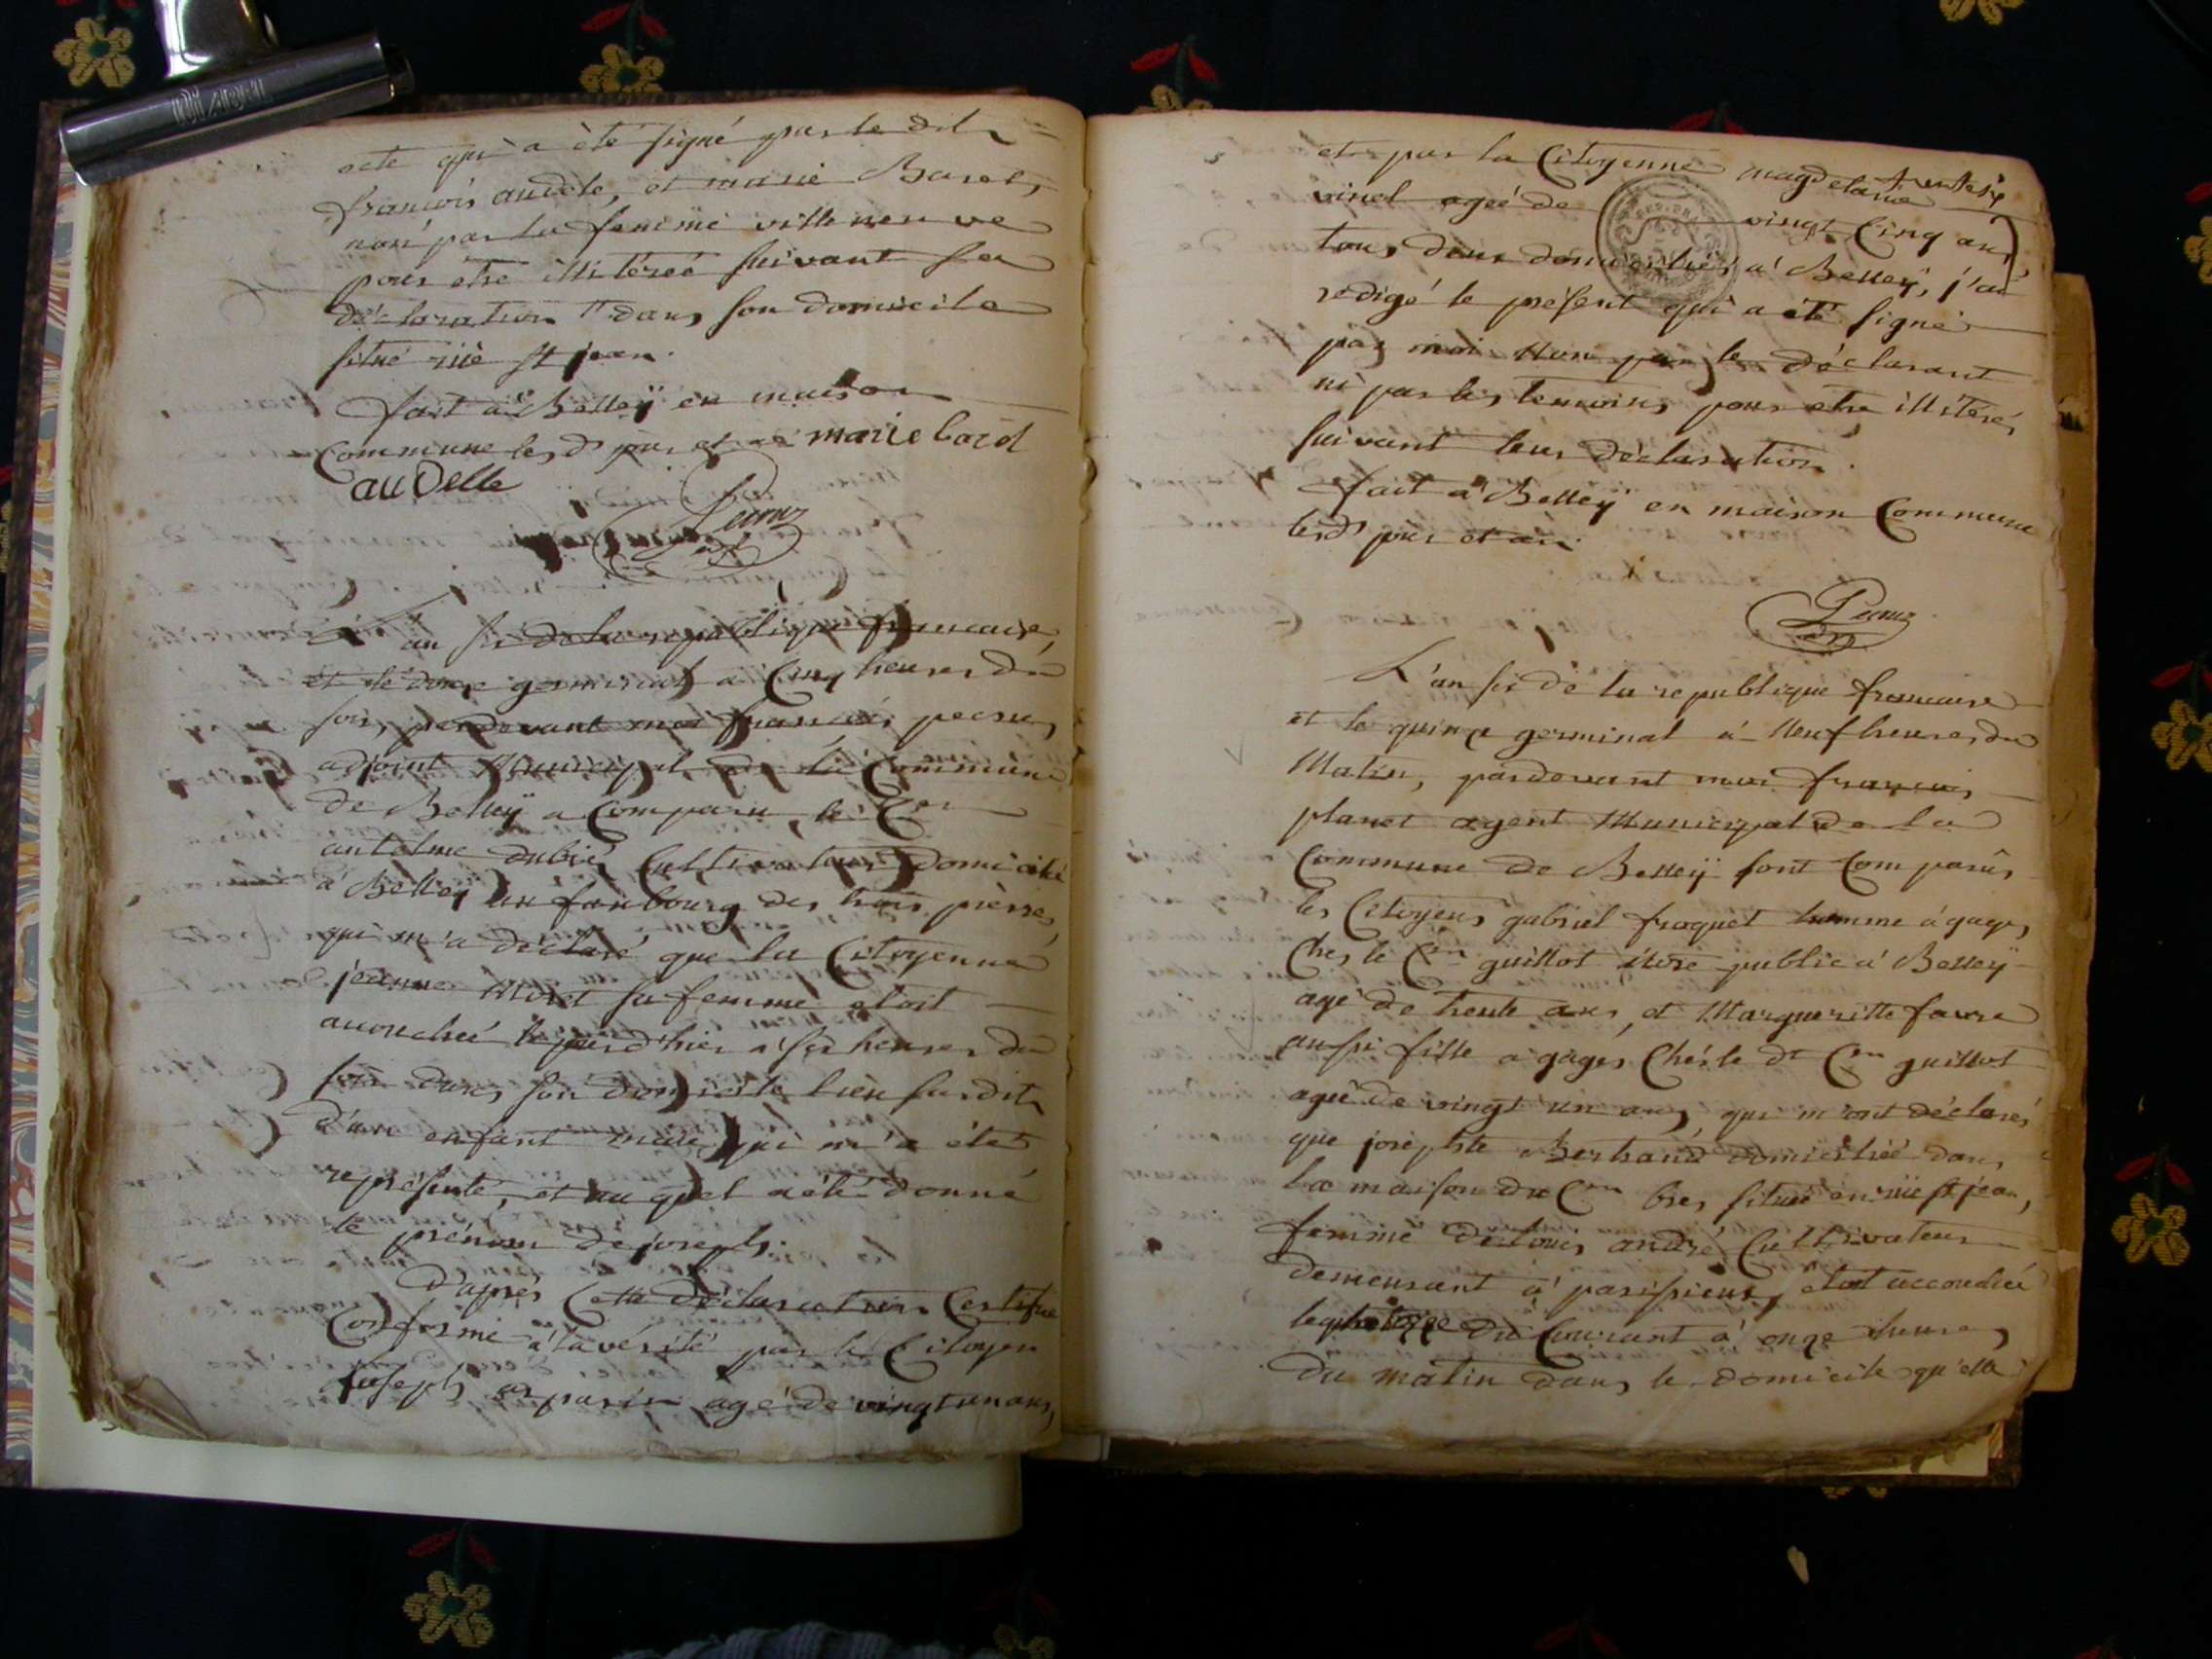 acte qui a èté signé par le dit
francois audèle, et marie Baret,
non par la femme ville neuve
pour etre illitéreé suivant sa
dèclaration dans son domicile
situé ruë st jean.
fait à Belleÿ en maison
Commune lesd. jour et an marie barel
audelle
Pecruz
L'an six de la republique francaise,
et le douze germinal a Cinq heures du
soir, pardevant moi francois pecruz
adjoint Municipal de la Commune
de Belleÿ a Comparu, le Cen
antelme dubié Cultivateur domicilié
à Belleÿ au faubourg des trois pierres,
qui m'a déclaré que la Citoyenne
jeanne Moret sa femme etoit
accouchée le jour d'hier a six heures du
soir dans son domicile lieu susdit
d'un enfant male qui m'a étét
représenté, et au quel a été donné
le prénom de joseph.
D'aprés Cette déclaration Certifiée
Conforme à la vérité par le Citoyen
Joseph parin agé de vingt un ans,
et par la Citoyenne magdelaine trente six
vinel ageé de vingt Cinq ans,
tous deux domiciliés a' Belleÿ, j'ai
redigé le present qui a été signé
par moi Non par le déclarant
ni par les temoins pour etre illitérés
suivant leur déclaration.
fait a' Belleÿ en maison Commune
lesd. jour et an.
Pecruz
L'an six de la republique francaise
et le quinze germinal á Neuf heures du
Matin, pardevant moi francois
planet agent Municipal de la
Commune de Belleÿ sont Comparûs
les Citoyens gabriel froquet homme à gages
Ches le Cen guillot Nore public a' Belleÿ
agé de trente ans, et Margueritte favre
aussi fille a gages Chés le dt Cen guillot
ageé de vingt un ans, qui m'ont déclarés
que joséphte Bertrand domiciliée dans
la maison du Cen bres située en ruë st jean,
femme de louis andré Cultivateur
demeurant à parissieux, etoit accouchée
le quatorze du Courant à onze heures
du matin dans le domicile qu'elle